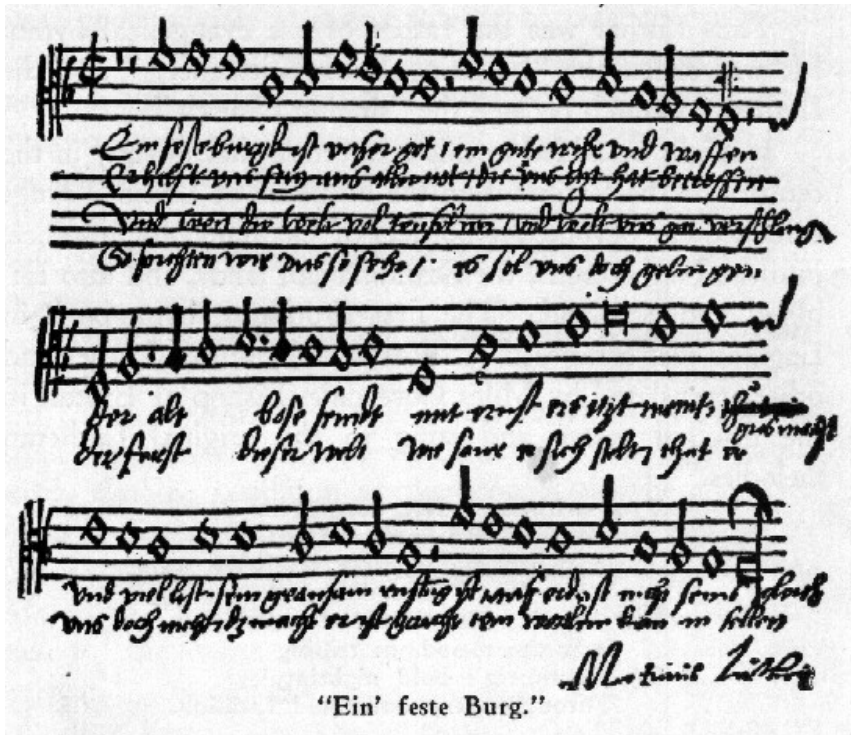 Ein feste burgk ist unser got / ein gute wehr und waffen
Er hilfft uns frey aus aller not / die uns hat betroffen
Und wen die welt vol teufel wer / und wolt uns gar verschling
So furchten wir uns so sehr / es sol uns doch gelingen
der alt bose feindt mit ernst ers itzt meint
gros macht
der furst dieser welt wie saur er sich stelt that er
und viel list sein grausam rustung ist auf erd ist nicht seins gleich
uns doch nicht macht er ist gericht ein wortlein kan in fellen
Martinus Luther
"Ein' feste Burg."